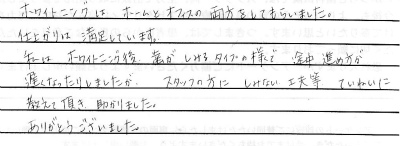 ホワイトニングは、ホームとオフィスの両方をしてもらいました。
仕上がりは満足しています。
私は、ホワイトニング後、歯がしみるタイプの様で途中進め方が
遅くなったりしましたが、スタッフの方にしみない工夫等、ていねいに
教えて頂き、助かりました。
ありがとうございました。